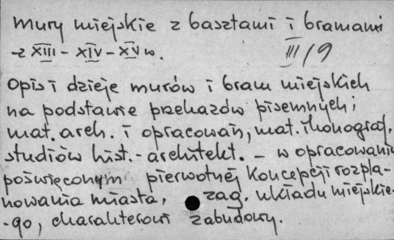 Mury miejskie z basztami i bramami
-z XIII - XIV - XV w. III/9
Opis i dzieje murów i bram miejskich
na podstawie przekazów pisemnych;
mat. arch. i opracowań, mat. ikonograf,
studiów hist. - architekt. - w opracowaniu
poświęconym pierwotnej koncepcji rozpla-
nowania miasta, zag. układu miejskie-
-go, charakterowi zabudowy.